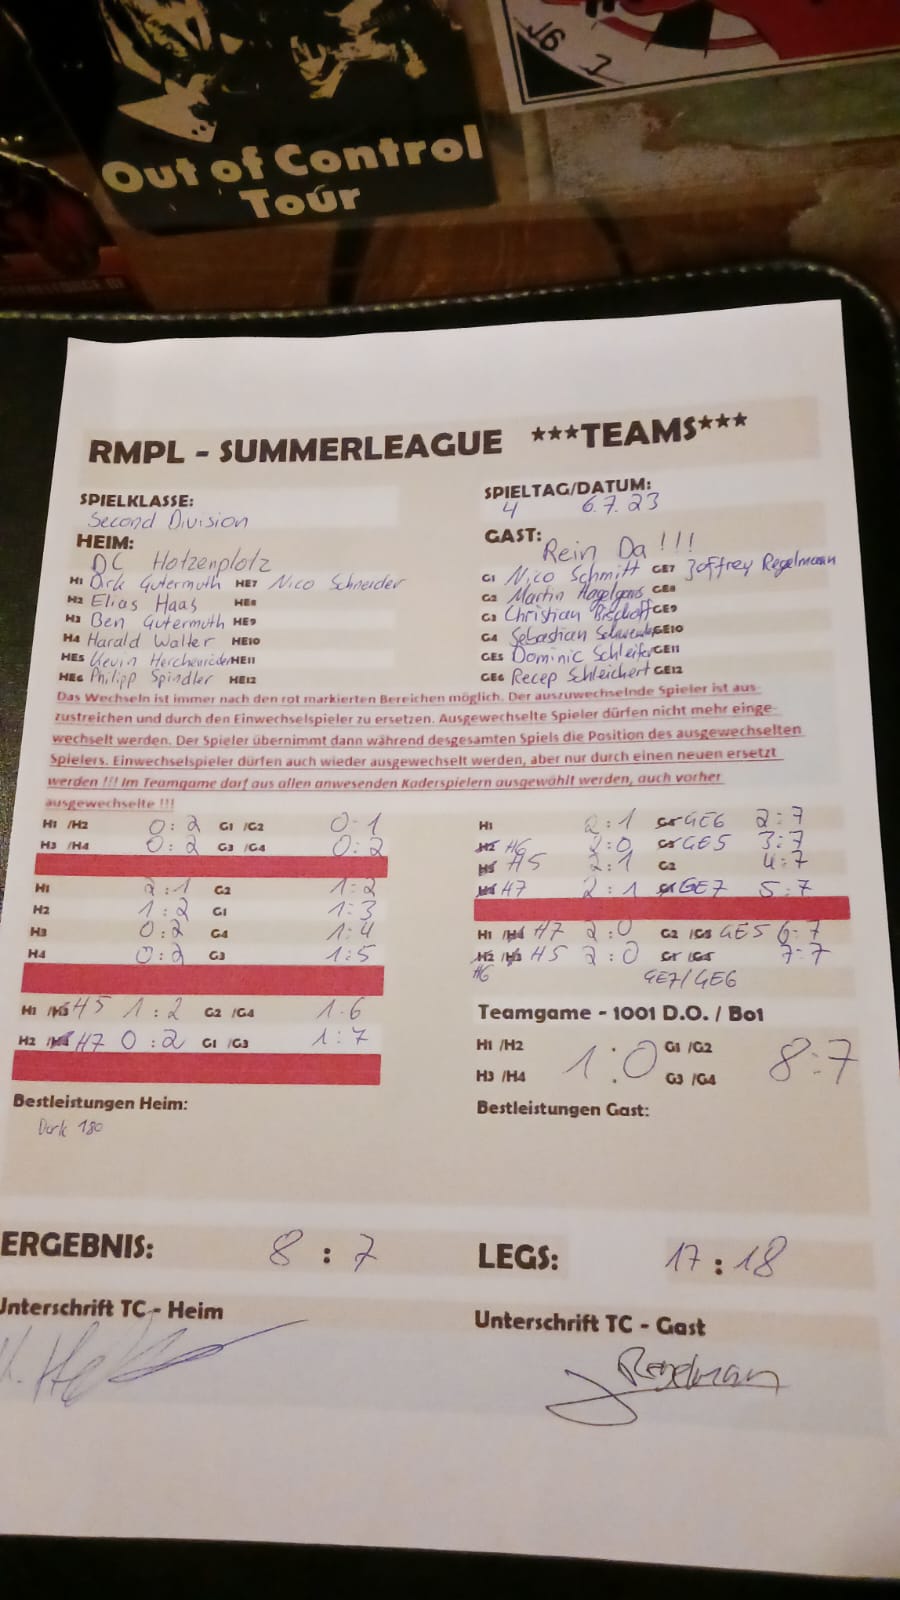 J6
Out of Control
Tour
RMPL - SUMMERLEAGUE ***TEAMS***
SPIELKLASSE:
Second Division
SPIELTAG/DATUM:
4 6.7.23
HEIM:
DC Hotzenplotz
GAST:
Rein Da !!!
H1 Dirk Gutermuth HE7 Nico Schneider
H2 Elias Haas HE8
H3 Ben Gutermuth HE9
H4 Harald Walter HE10
HE5 Kevin Herchenröder HE11
HE6 Philipp Spindler HE12
G1 Nico Schmitt GE7 Joffrey Regelmann
G2 Martin GE8
G3 Christian Bischoff GE9
G4 Sebastian GE10
GE5 Dominic Schleifer GE11
GE6 Recep Schleichert GE12
Das Wechseln ist immer nach den rot markierten Bereichen möglich. Der auszuwechselnde Spieler ist aus-
zustreichen und durch den Einwechselspieler zu ersetzen. Ausgewechselte Spieler dürfen nicht mehr einge-
wechselt werden. Der Spieler übernimmt dann während desgesamten Spiels die Position des ausgewechselten
Spielers. Einwechselspieler dürfen auch wieder ausgewechselt werden, aber nur durch einen neuen ersetzt
werden !!! Im Teamgame darf aus allen anwesenden Kaderspielern ausgewählt werden, auch vorher
ausgewechselte !!!
H1 /H2 0:2 G1 /G2 0:1
H3 /H4 0:2 G3 /G4 0:2
H1 2:1 G2 1:2
H2 1:2 G1 1:3
H3 0:2 G4 1:4
H4 0:2 G3 1:5
H1 /H3 H5 1:2 G2 /G4 1:6
H2 /H4 H7 0:2 G1 /G3 1:7
H1 2:1 GE6 2:7
H6 2:0 GE5 3:7
H5 2:1 G2 4:7
H7 2:1 GE7 5:7
H1 /H4 H7 2:0 G2 /G3 GE5 6:7
H2 /H3 H5 2:0 G1 /G4 7:7
H6 GE7/GE6
Teamgame - 1001 D.O. / Bo1
H1 /H2 G1 /G2
1:0 8:7
H3 /H4 G3 /G4
Bestleistungen Heim:
180
Bestleistungen Gast:
ERGEBNIS: 8 : 7
LEGS: 17 : 18
Unterschrift TC - Heim
Unterschrift TC - Gast
J Regelmann